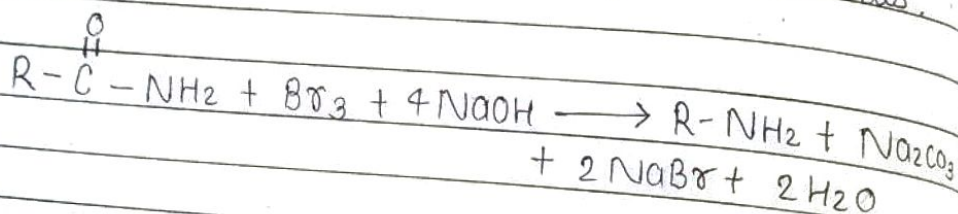 O
||
R - C - NH2 + Br3 + 4 NaOH ⟶ R - NH2 + Na2CO3
+ 2 NaBr + 2 H2O